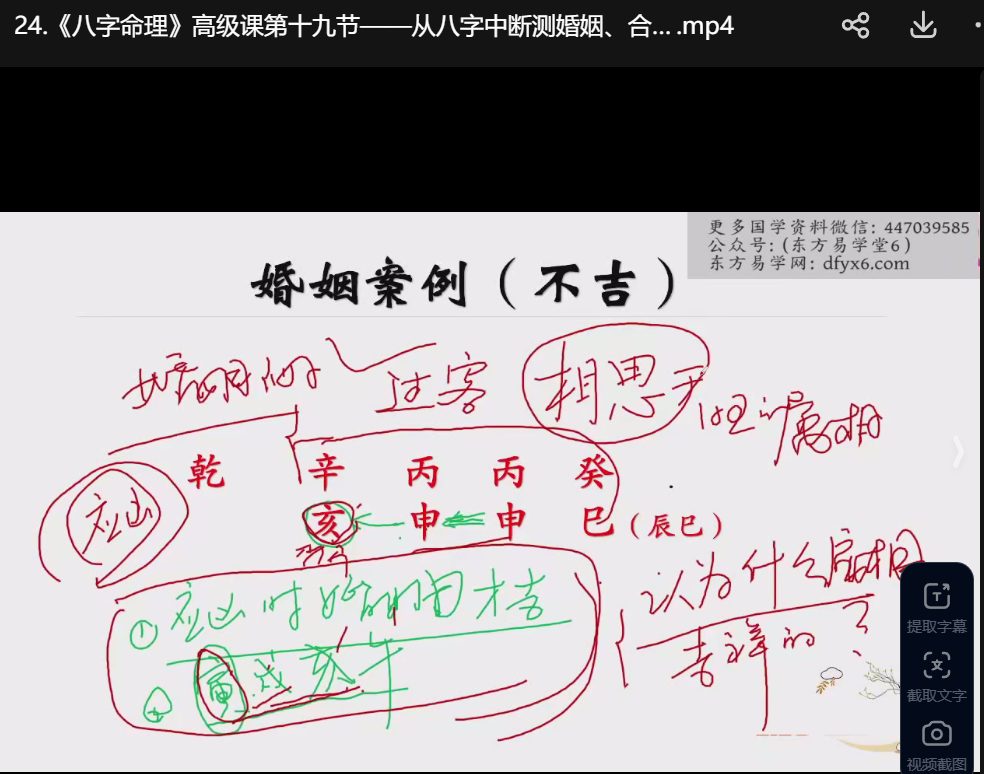 24.《八字命理》高级课第十九节——从八字中断测婚姻、合... .mp4
更多国学资料微信: 447039585
公众号: (东方易学堂6)
东方易学网: dfyx6.com
婚姻案例（不吉）
过客 相思
属相
乾 辛 丙 丙 癸
亥 申 申 巳（辰巳）
应凶
① 应凶时 才吉
② 寅 戌 亥 年
认为什么属相
吉祥的？
提取字幕
截取文字
视频截图